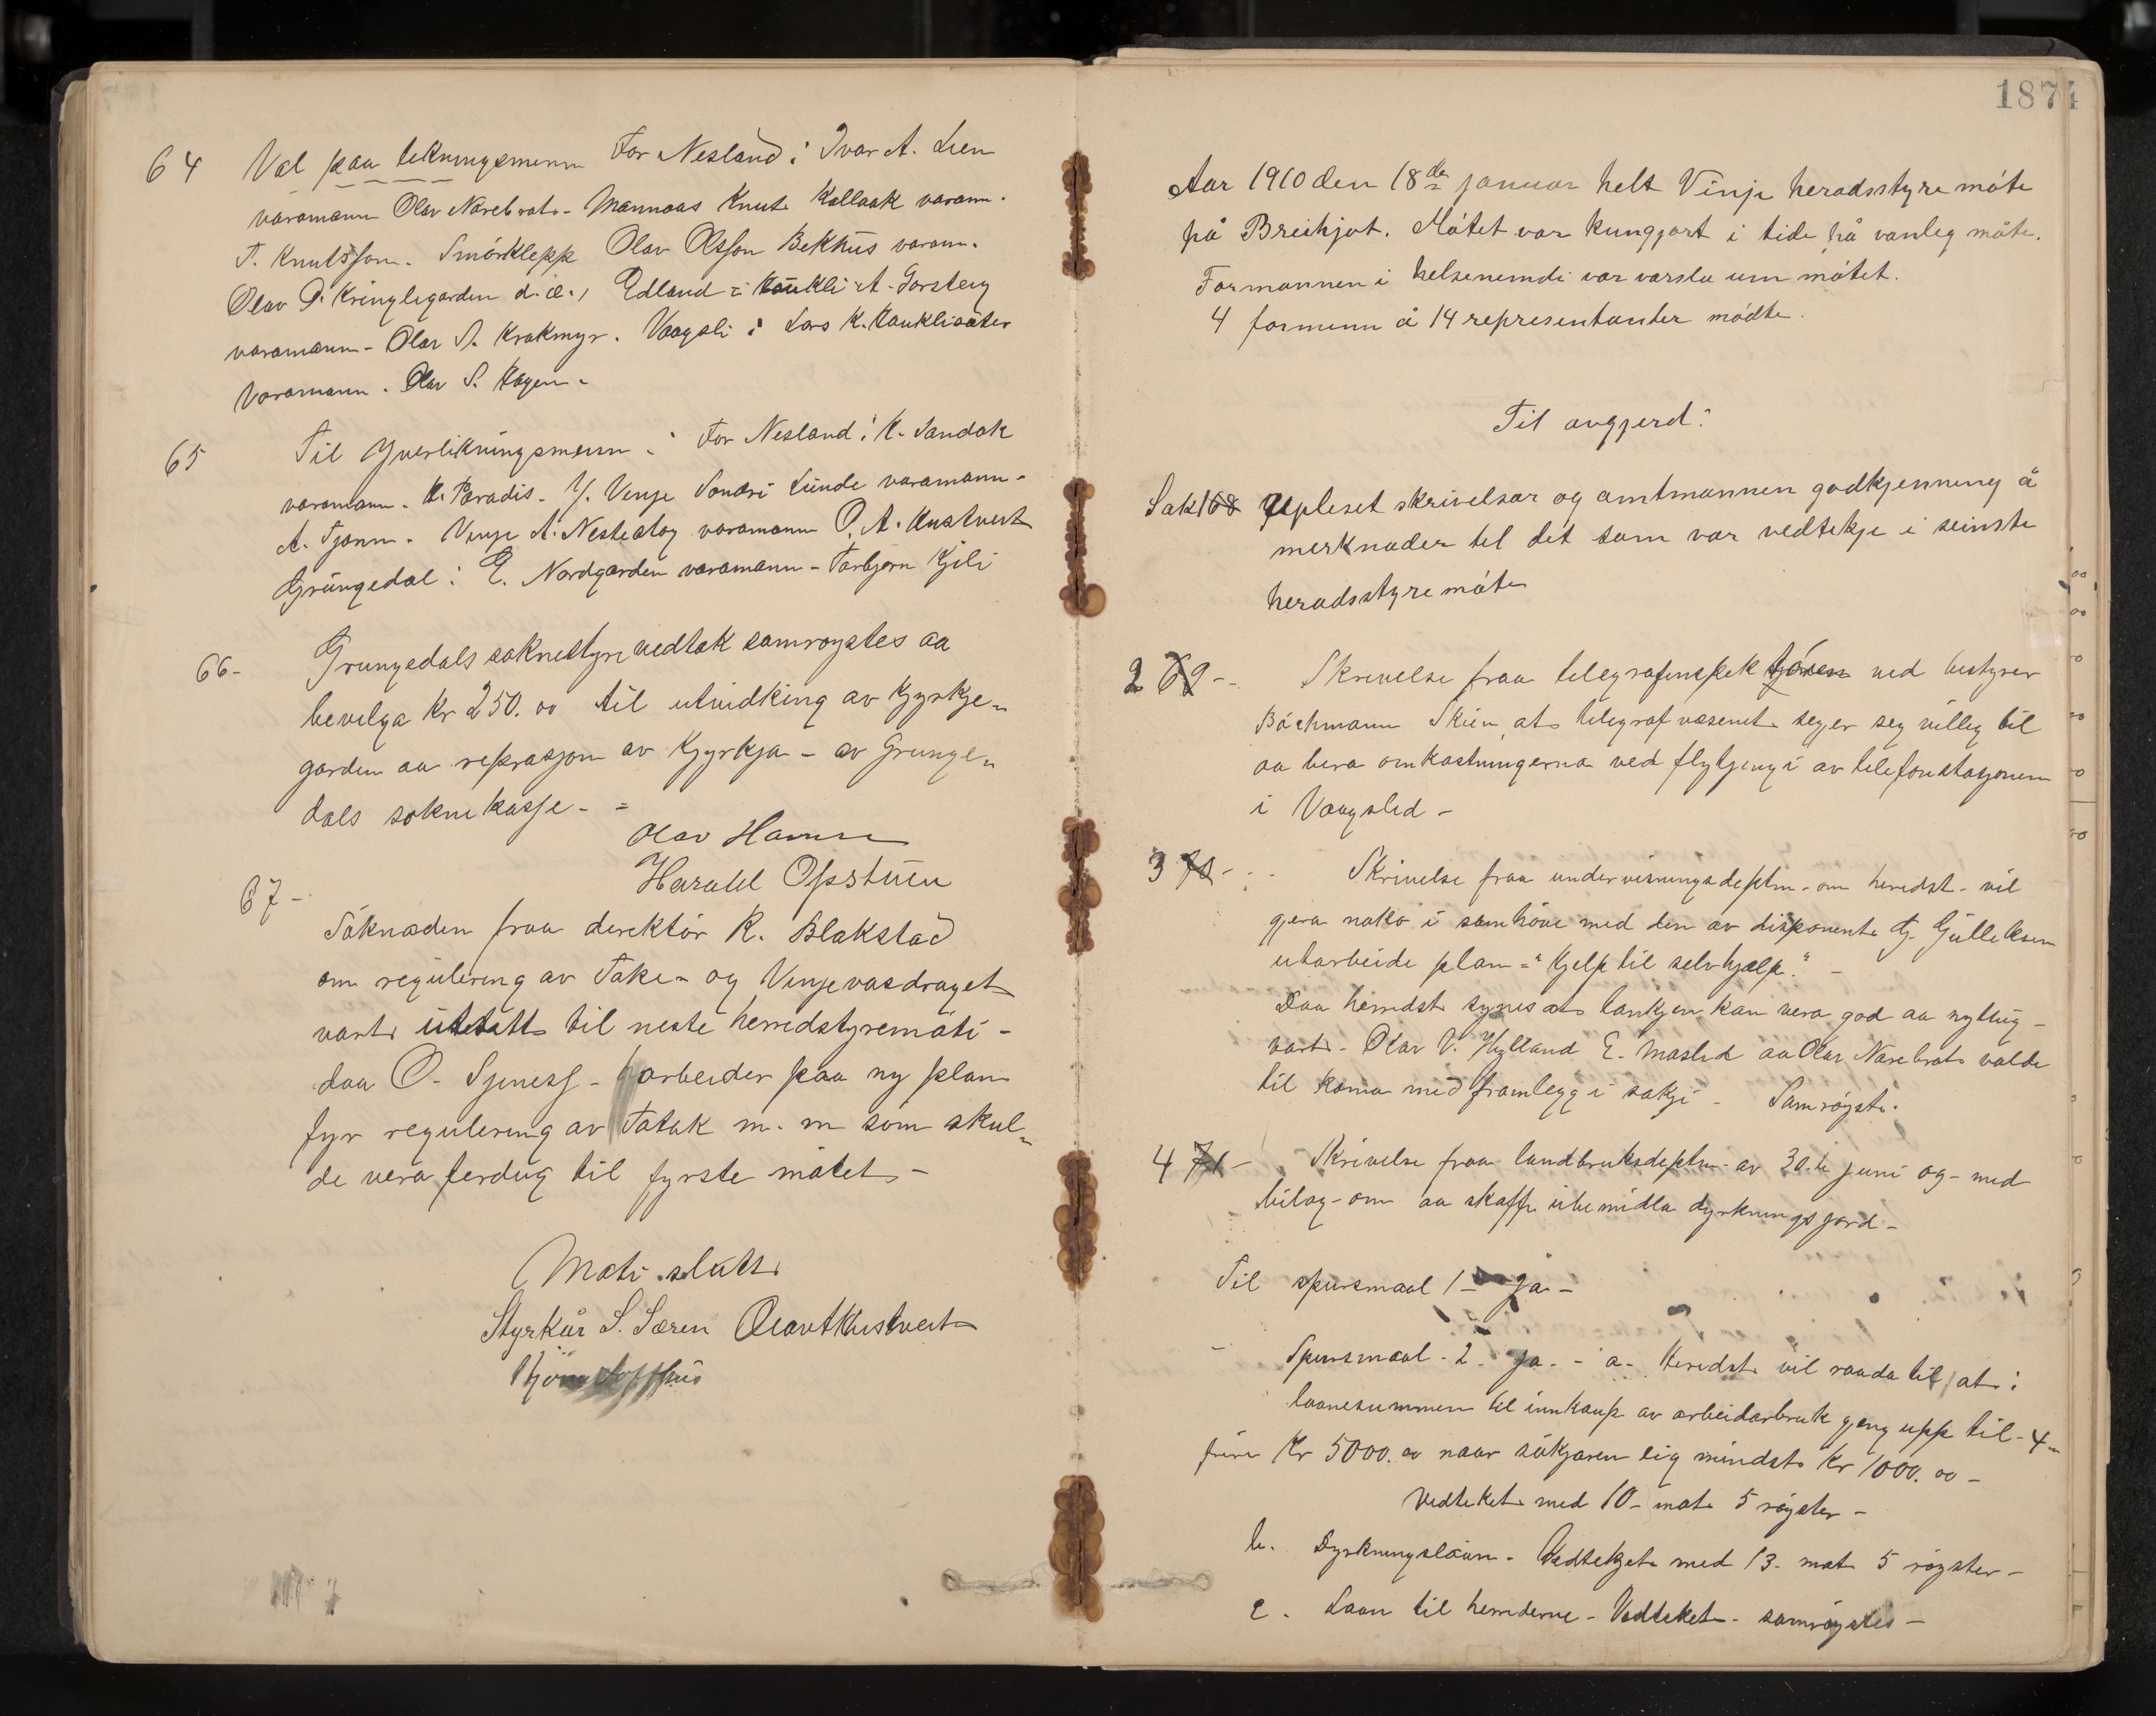 64 Val paa likningsmenn For Nesland: Ivar A. Lien
varamann Olav Narebrot - Mannaas Knut Kallaak varam.
T. Knutsson. Smörklepp Olav Olsson Bekhus varam.
Olav D. Kringlegarden d. æ., Edland: Haukli A. Garsteig
varamann - Olav S. Krokmyr. Vaagsli: Lars K. Hauklisæter
Varamann. Olav S. Hagen.
65 Til Yverlikningsmenn: For Nesland: K. Sandok
varamann. K. Paradis. Y. Vinje Sondri Lunde varamann -
A. Tjonn. Vinje A. Nestestog varamann O. A. Kustveit
Grungedal: E. Nordgarden varamann - Torbjorn Kjili
66- Grungedals soknestyre vedtok samroystes aa
bevilga Kr 250.00 til utvidking av Kyrkje-
garden aa reprasjon av Kyrkja - av Grunge-
dals soknekasse - =
Olav Hamre
Harald Opstuen
67- Söknaden fraa direktör K. Blakstad
om regulering av Toke- og Vinjevasdraget
vart utsett til neste herredstyremöti -
daa O. Sjeness - arbeider paa ny plan
fyr regulering av Totak m. m som skul-
de vera ferdug til fyrste mötet -
Möti slutt.
Styrkår S. Særen Olav A Kustveit
1874
Aar 1910 den 18de januar helt Vinje heradsstyre möte
på Breihjot. Mötet var kungjort i tide på vanleg måte.
Formannen i helsenemdi var varsla um mötet.
4 formenn å 14 representantar mödte.
Til avgjerd:
Sak 1 68 Upleset skrivelsar og amtmannen godkjenning å
merknader til det som var vedtekje i seinste
heradsstyre möte
2 69 - - Skrivelse fraa telegrafinspektören ved bestyrer
Bachmann Skien, at telegrafvæsenet seger seg villeg til
aa bera omkostningerna ved flytjengi av telefonstasjonen
i Vaagsled -
3 70 - - Skrivelse fraa undervisningsdeptm - om heredst - vil
gjera noko i samhöve med den av disponent G. Gulleksen
utarbeide plan = "Hjelp til selvhjælp." -
Daa herredst synes at tankjen kan vera god aa nyttug -
vart - Olav V. Hylland E. Masled aa Olav Narebrot valde
til koma med framlegg i sakji - Samröyst.
4 71 - Skrivelse fraa landbruksdeptm - av 30.te juni og - med
bilag - om aa skaffe ubemidla dyrkningsjord -
Til spursmaal 1 - Ja -
- Spursmaal - 2 - Ja. - a - Heredst vil raada til, at i
laanesummen til innkaup av arbeidarbruk gjeng upp til - 4 -
fire Kr 5000.00 naar sökjaren eig mindst Kr 1000.00 -
Vedteket med 10 - mot 5 röyster -
b. Dyrkningslaan - Vedtekjet med 13 - mot 5 röyster -
c. Laan til herrederne - Vedteket - samröystes -